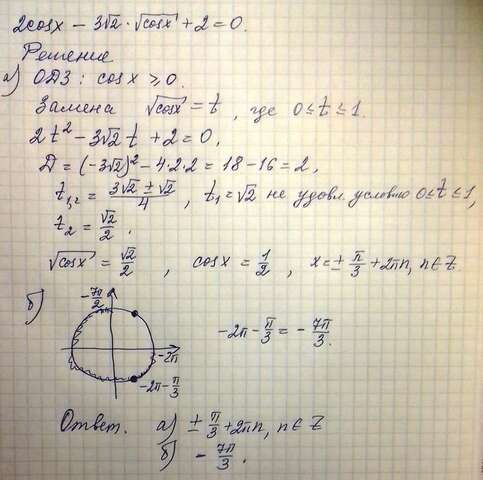 2cosx - 3√2 · √cosx + 2 = 0.
Решение
а) ОДЗ: cosx ⩾ 0.
Замена √cosx = t, где 0 ≤ t ≤ 1.
2t² - 3√2 t + 2 = 0,
D = (-3√2)² - 4·2·2 = 18 - 16 = 2,
t₁,₂ = (3√2 ± √2)/4, t₁ = √2 не удовл. условию 0 ≤ t ≤ 1,
t₂ = √2/2.
√cosx = √2/2, cosx = 1/2, x = ± π/3 + 2πn, n ∈ Z.
б) -7π/2
-2π - π/3 = -7π/3.
-2π
-2π - π/3
Ответ. а) ± π/3 + 2πn, n ∈ Z
б) -7π/3.